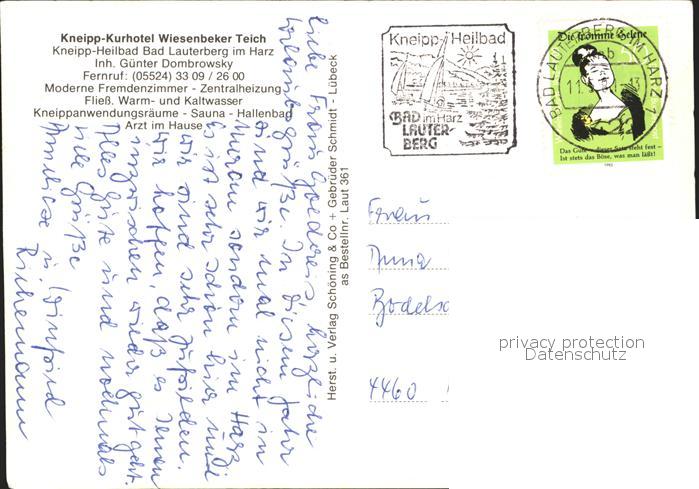 Kneipp-Kurhotel Wiesenbeker Teich
Kneipp-Heilbad Bad Lauterberg im Harz
Inh. Günter Dombrowsky
Fernruf: (05524) 33 09 / 26 00
Moderne Fremdenzimmer - Zentralheizung
Fließ. Warm- und Kaltwasser
Kneippanwendungsräume - Sauna - Hallenbad
Arzt im Hause
Liebe Frau herzliche
Urlaubsgrüße. In diesem Jahr
sind wir mal nicht in
sondern im Harz
Es ist sehr schön hier und
wir sind sehr zufrieden.
Wir hoffen, daß es Ihnen
inzwischen wieder gut geht.
Alles Gute und nochmals
viele Grüße
Anneliese u. Winfried
Herst. u. Verlag Schöning & Co + Gebrüder Schmidt - Lübeck
as Bestellnr. Laut 361
Kneipp-Heilbad
BAD im Harz
LAUTER-
BERG
BAD LAUTERBERG IM HARZ 1
Die fromme Helene
Das Gute - dieser Satz steht fest -
Ist stets das Böse, was man läßt!
Frau
Anna
4460
privacy protection
Datenschutz